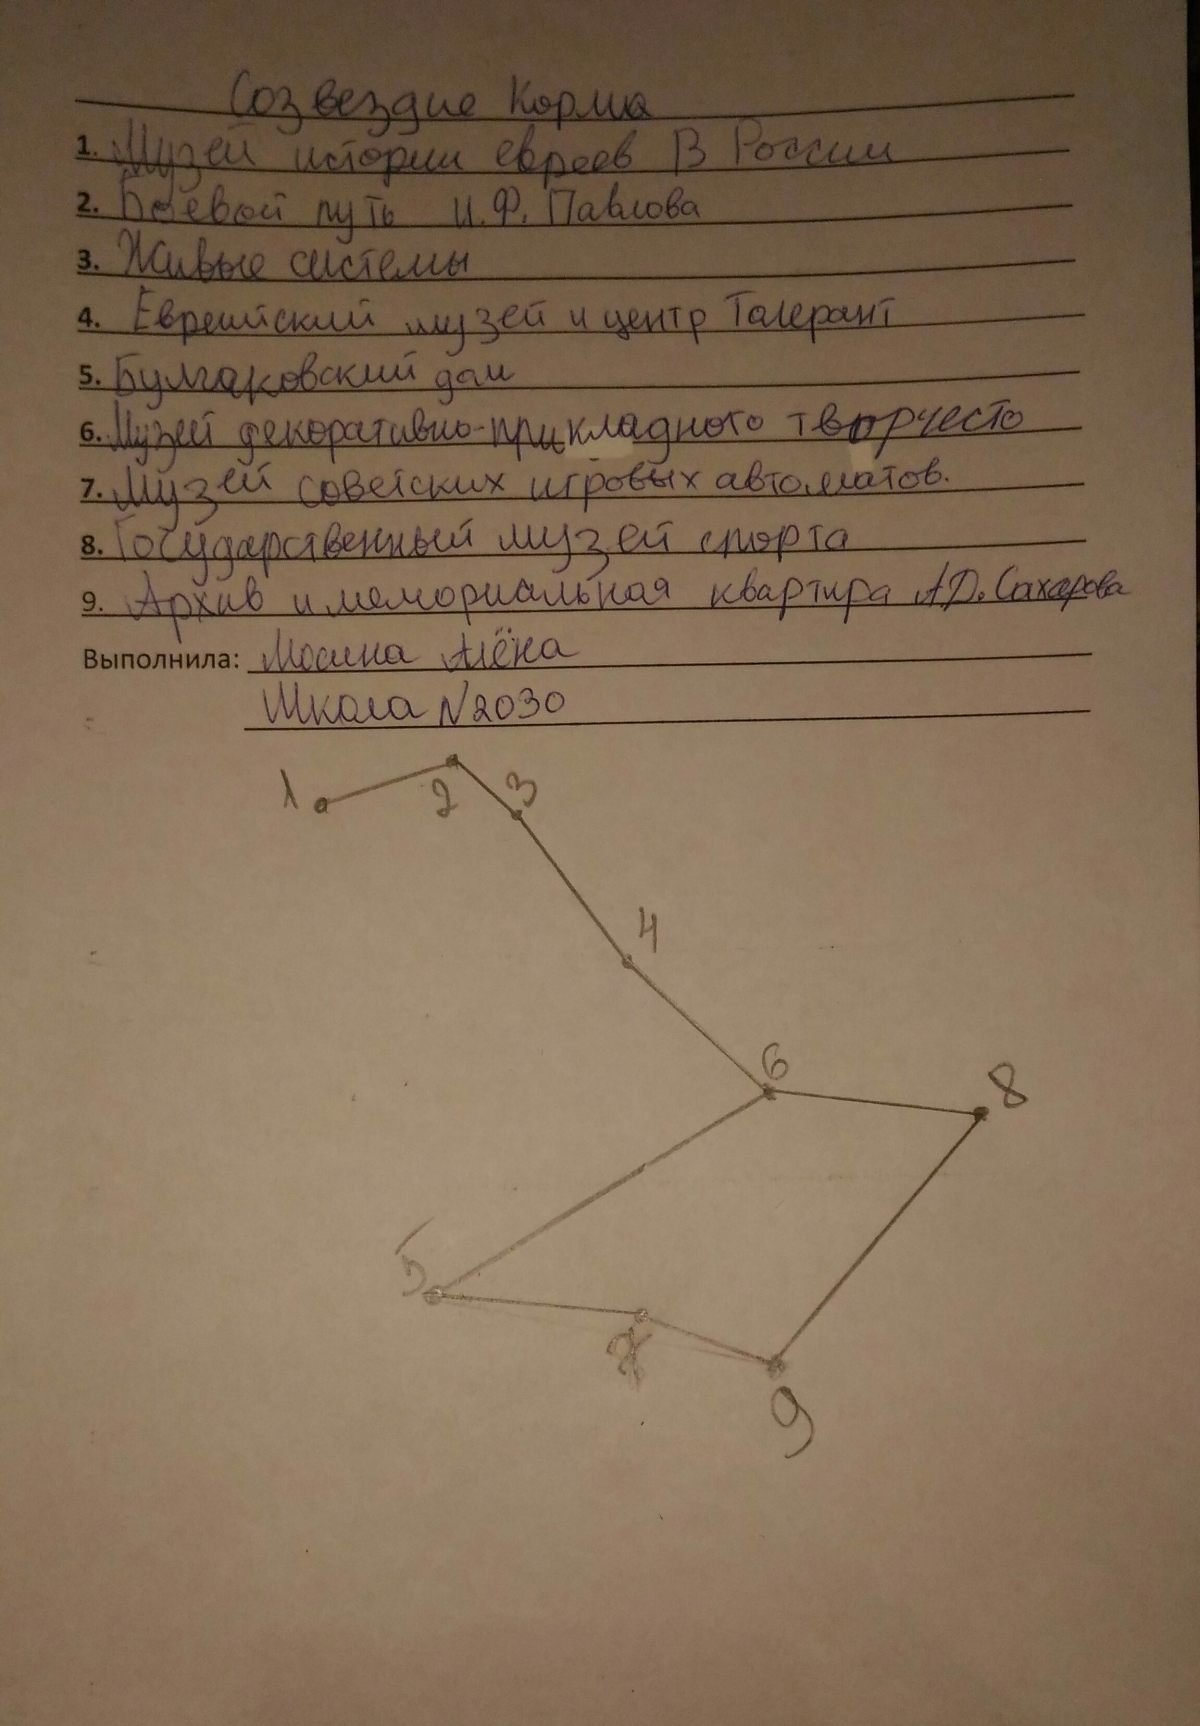 Созвездие Корма
1. Музей истории евреев В России
2. Боевой путь И.Ф. Павлова
3. Живые системы
4. Еврейский музей и центр Толерант
5. Булгаковский дом
6. Музей декоративно-прикладного творчесто
7. Музей советских игровых автоматов.
8. Государственный музей спорта
9. Архив и мемориальная квартира А.Д. Сахарова
Выполнила: Алёна
Школа №2030
1
2
3
4
6
8
5
7
9